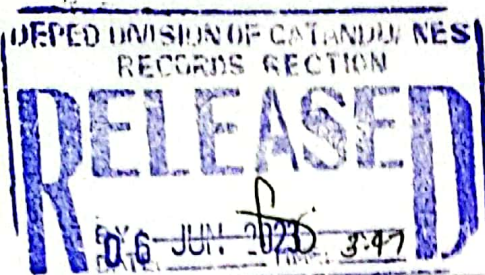 DEPED DIVISION OF CATANDUANES
RECORDS SECTION
RELEASED
06 JUN. 2023 3:47